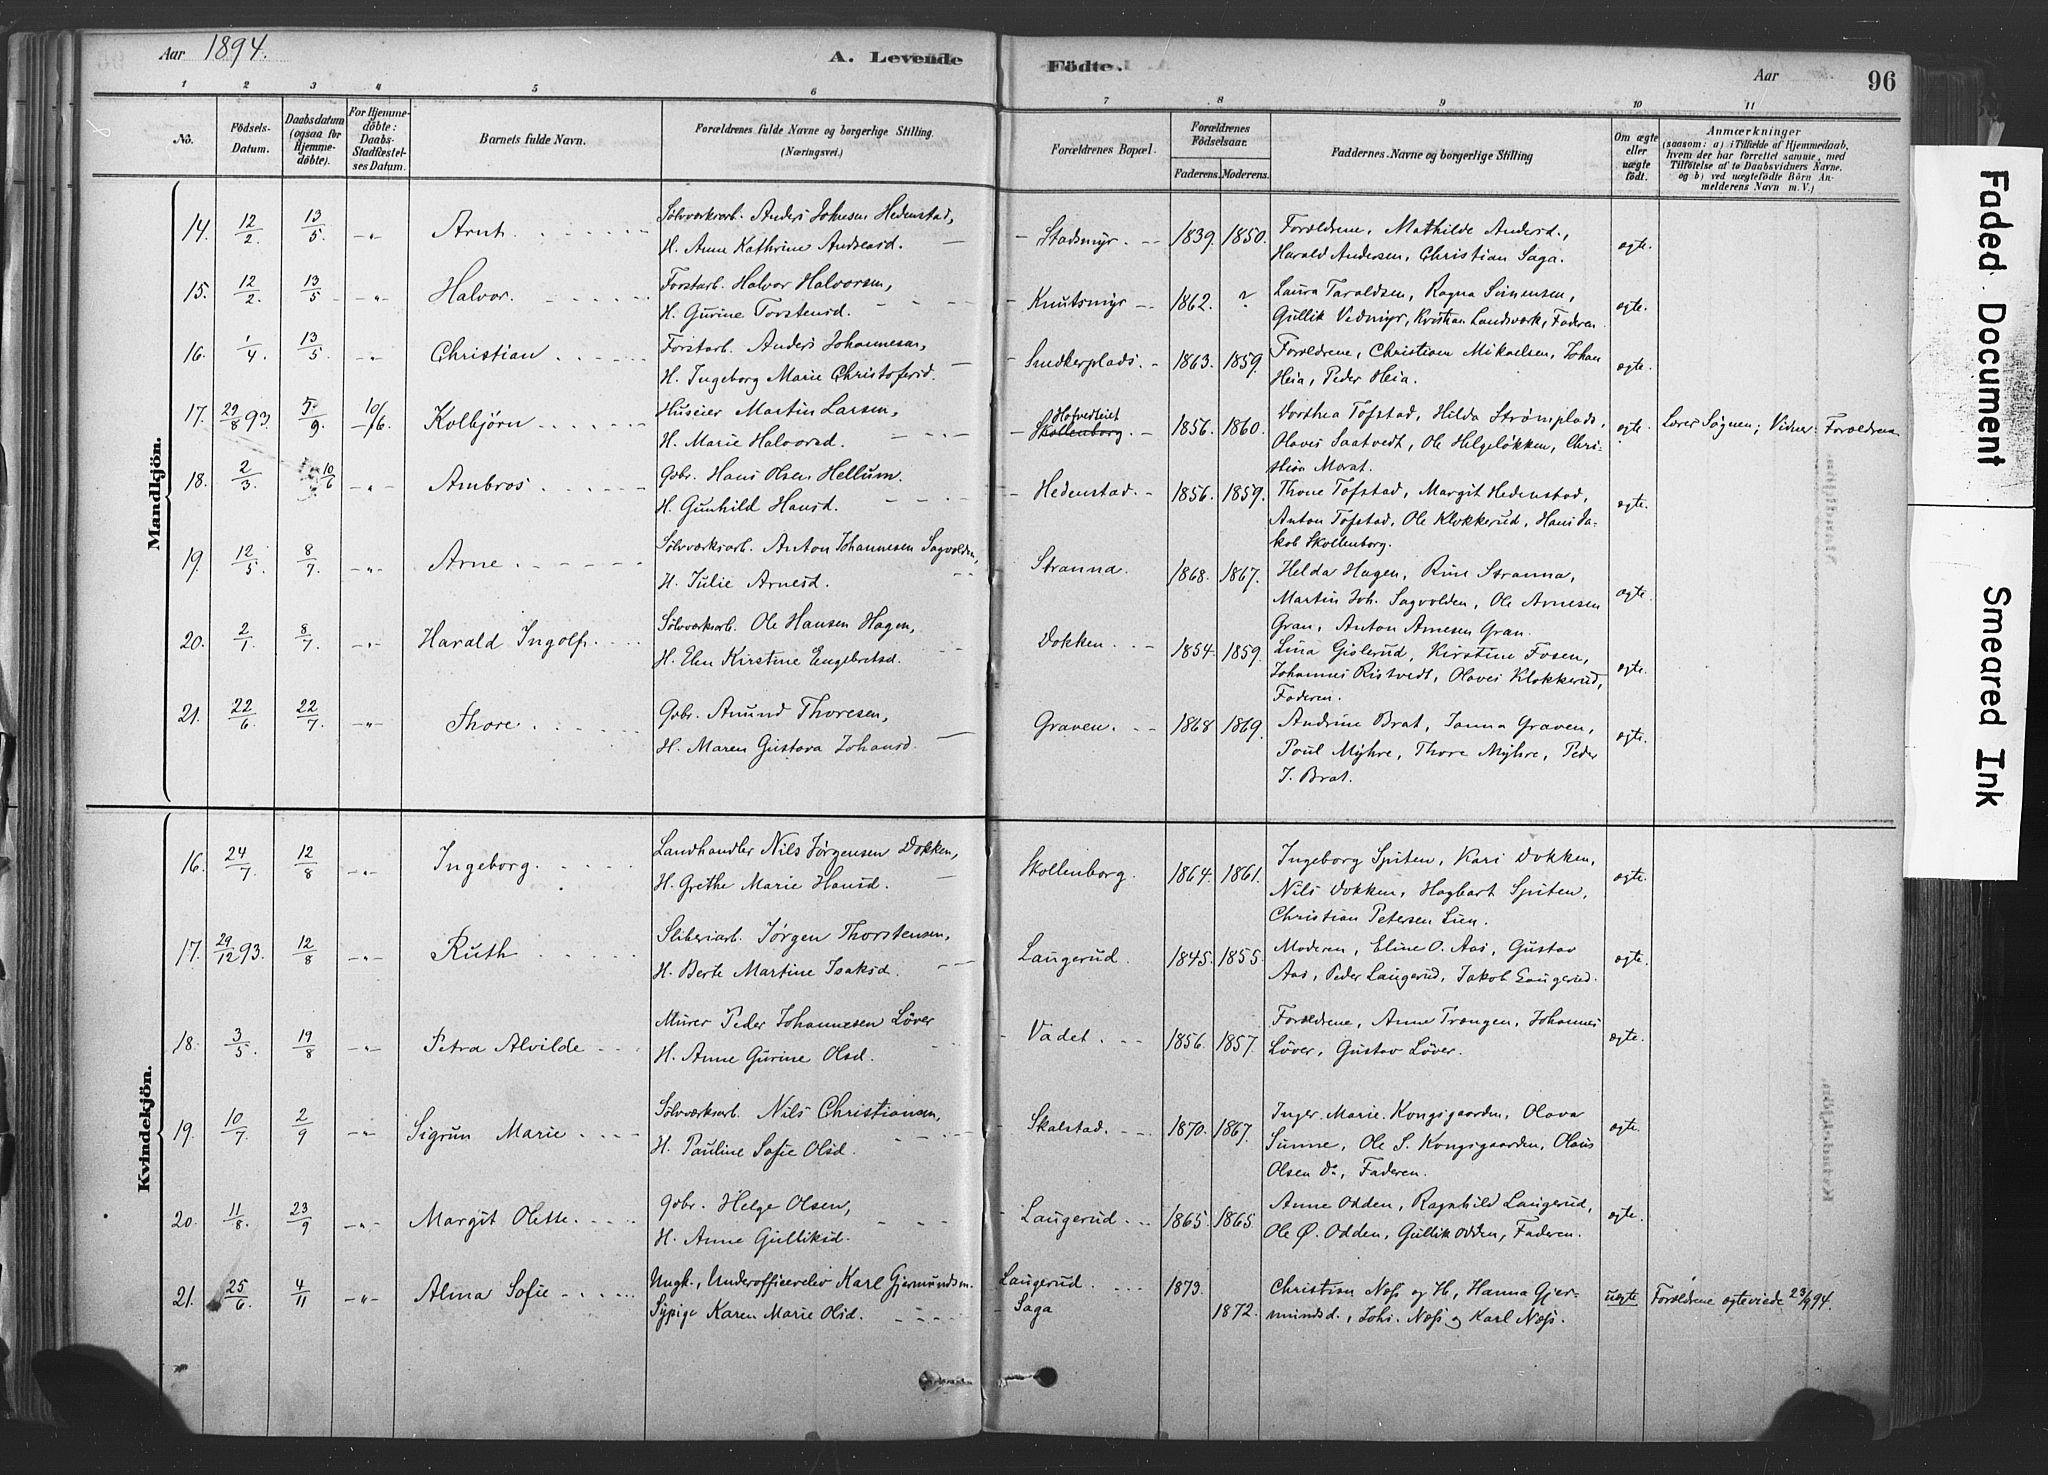 Aar 1894.
A. Levende Födte.
Aar
96
1 2 3 4 5 6 7 8 9 10 11
No.
Födsels-Datum.
Daabsdatum (ogsaa for Hjemmedöbte).
For Hjemmedöbte: Daabs-Stadfæstelses Datum.
Barnets fulde Navn.
Forældrenes fulde Navne og borgerlige Stilling. (Næringsvei.)
Forældrenes Bopæl.
Forældrenes Födselsaar.
Faderens. Moderens.
Faddernes Navne og borgerlige Stilling
Om ægte eller uægte födt.
Anmærkninger
(saasom: a) i Tilfælde af Hjemmedaab, hvem der har forrettet samme, med Tilföielse af to Daabsvidners Navne, og b) ved uægtefödte Börn Anmelderens Navn m. V.)
Mandkjön.
14. 12/2 13/5 -„- Arnt Sølvværksarb. Anders Johnsen Hedenstad, Stadsmyr. 1839. 1850. Forældrene, Mathilde Andersd., ægte.
H. Anne Kathrine Andreasd. Harald Andersen, Christian Saga.
15. 12/2 13/5 -„- Halvor. Forstarb. Halvor Halvorsen, Knutsmyr 1862. ? Laura Taraldsen, Ragna Simensen, ægte.
H. Gurine Torstensd. Gullik Vedmyr, Kristian Landsværk, Faderen.
16. 1/4 13/5 -„- Christian Forstarb. Anders Johannesen, Smedkerplads. 1863. 1859. Forældrene, Christian Mikaelsen, Johan ægte.
H. Ingeborg Marie Christofersd. Heia, Peder Heia.
17. 29/8 93. 5/9 10/6 Kolbjörn Huseier Martin Larsen, Skollenborg. 1856. 1860. Dorthea Tofstad, Hilda Strømplads, ægte. Lærer Søgnen; Vidner: Forældrene
H. Marie Halvorsd. Olaves Saatvedt, Ole Helgeløkken, Christian Morat.
18. 2/3 10/6 -„- Ambros Gbr. Hans Olsen Hellum. Hedenstad. 1856. 1859. Thone Tofstad, Margit Hedenstad, ægte.
H. Gunhild Hansd. Anton Tofstad, Ole Klokkerud, Hans Jakob Skollenborg.
19. 12/5 8/7 -„- Arne Sølvværksarb. Anton Johannesen Sagvolden, Stranna. 1868. 1867. Helda Hagen, Rine Stranna, ægte.
H. Julie Arnesd. Martin Joh. Sagvolden, Ole Arnesen Gran, Anton Arnesen Gran.
20. 2/1 8/7 -„- Harald Ingolf. Sølvværksarb. Ole Hansen Hagen, Dokken. 1854. 1859. Lina Gislerud, Kirstine Fosen, ægte.
H. Elen Kirstine Engebretsd. Johannes Ristvedt, Olaves Klokkerud, Faderen.
21. 22/6 22/7 -„- Thore Gbr. Amund Thoresen, Graven. 1868 1869. Andrine Brat, Janna Graven, ægte.
H. Maren Gustava Johansd. Poul Myhre, Thore Myhre, Peder J. Brat.
Kvindekjön.
16. 24/7 12/8 -„- Ingeborg. Landhandler Nils Jørgensen Dokken, Skollenborg. 1864. 1861. Ingeborg Spiten, Kari Dokken, ægte.
H. Grethe Marie Hansd. Nils Dokken, Hagbart Spiten, Christian Petersen Lien.
17. 29/12 93. 12/8 -„- Ruth Sliberiarb. Jørgen Thorstensen, Laugerud. 1845. 1855. Moderen, Eline O. Aas, Gustav ægte.
H. Berte Martine Isaksd. Aas, Peder Laugerud, Jakob Laugerud.
18. 3/5 19/8 -„- Petra Alvilde Murer Peder Johannesen Löver Vadet. 1856. 1857. Forældrene, Anne Trangen, Johannes ægte.
H. Anne Gurine Olsd. Löver, Gustav Löver.
19. 10/7 2/9 -„- Sigrun Marie Sølvværksarb. Nils Christiansen, Skalstad. 1870. 1867. Inger Marie Kongsgaarden, Olava ægte.
H. Pauline Sofie Olsd. Sunne, Ole S. Kongsgaarden, Olaus Olsen Do, Faderen.
20. 11/8. 23/9 -„- Margit Olette. Gbr. Helge Olsen, Laugerud. 1865. 1865. Anne Odden, Ragnhild Laugerud, ægte.
H. Anne Gulliksd. Ole Ø. Odden, Gullik Odden, Faderen.
21. 25/6. 4/11 -„- Alma Sofie Ungk., Underofficerelev Karl Gjermundsen. Laugerud 1873. Christian Næss og H, Hanna Gjer- uægte Forældrene ægteviede 23/9 94.
Sypige Karen Marie Olsd. Saga 1872. mundsd., Johs. Næss og Karl Næss.
Faded Document
Smeared Ink